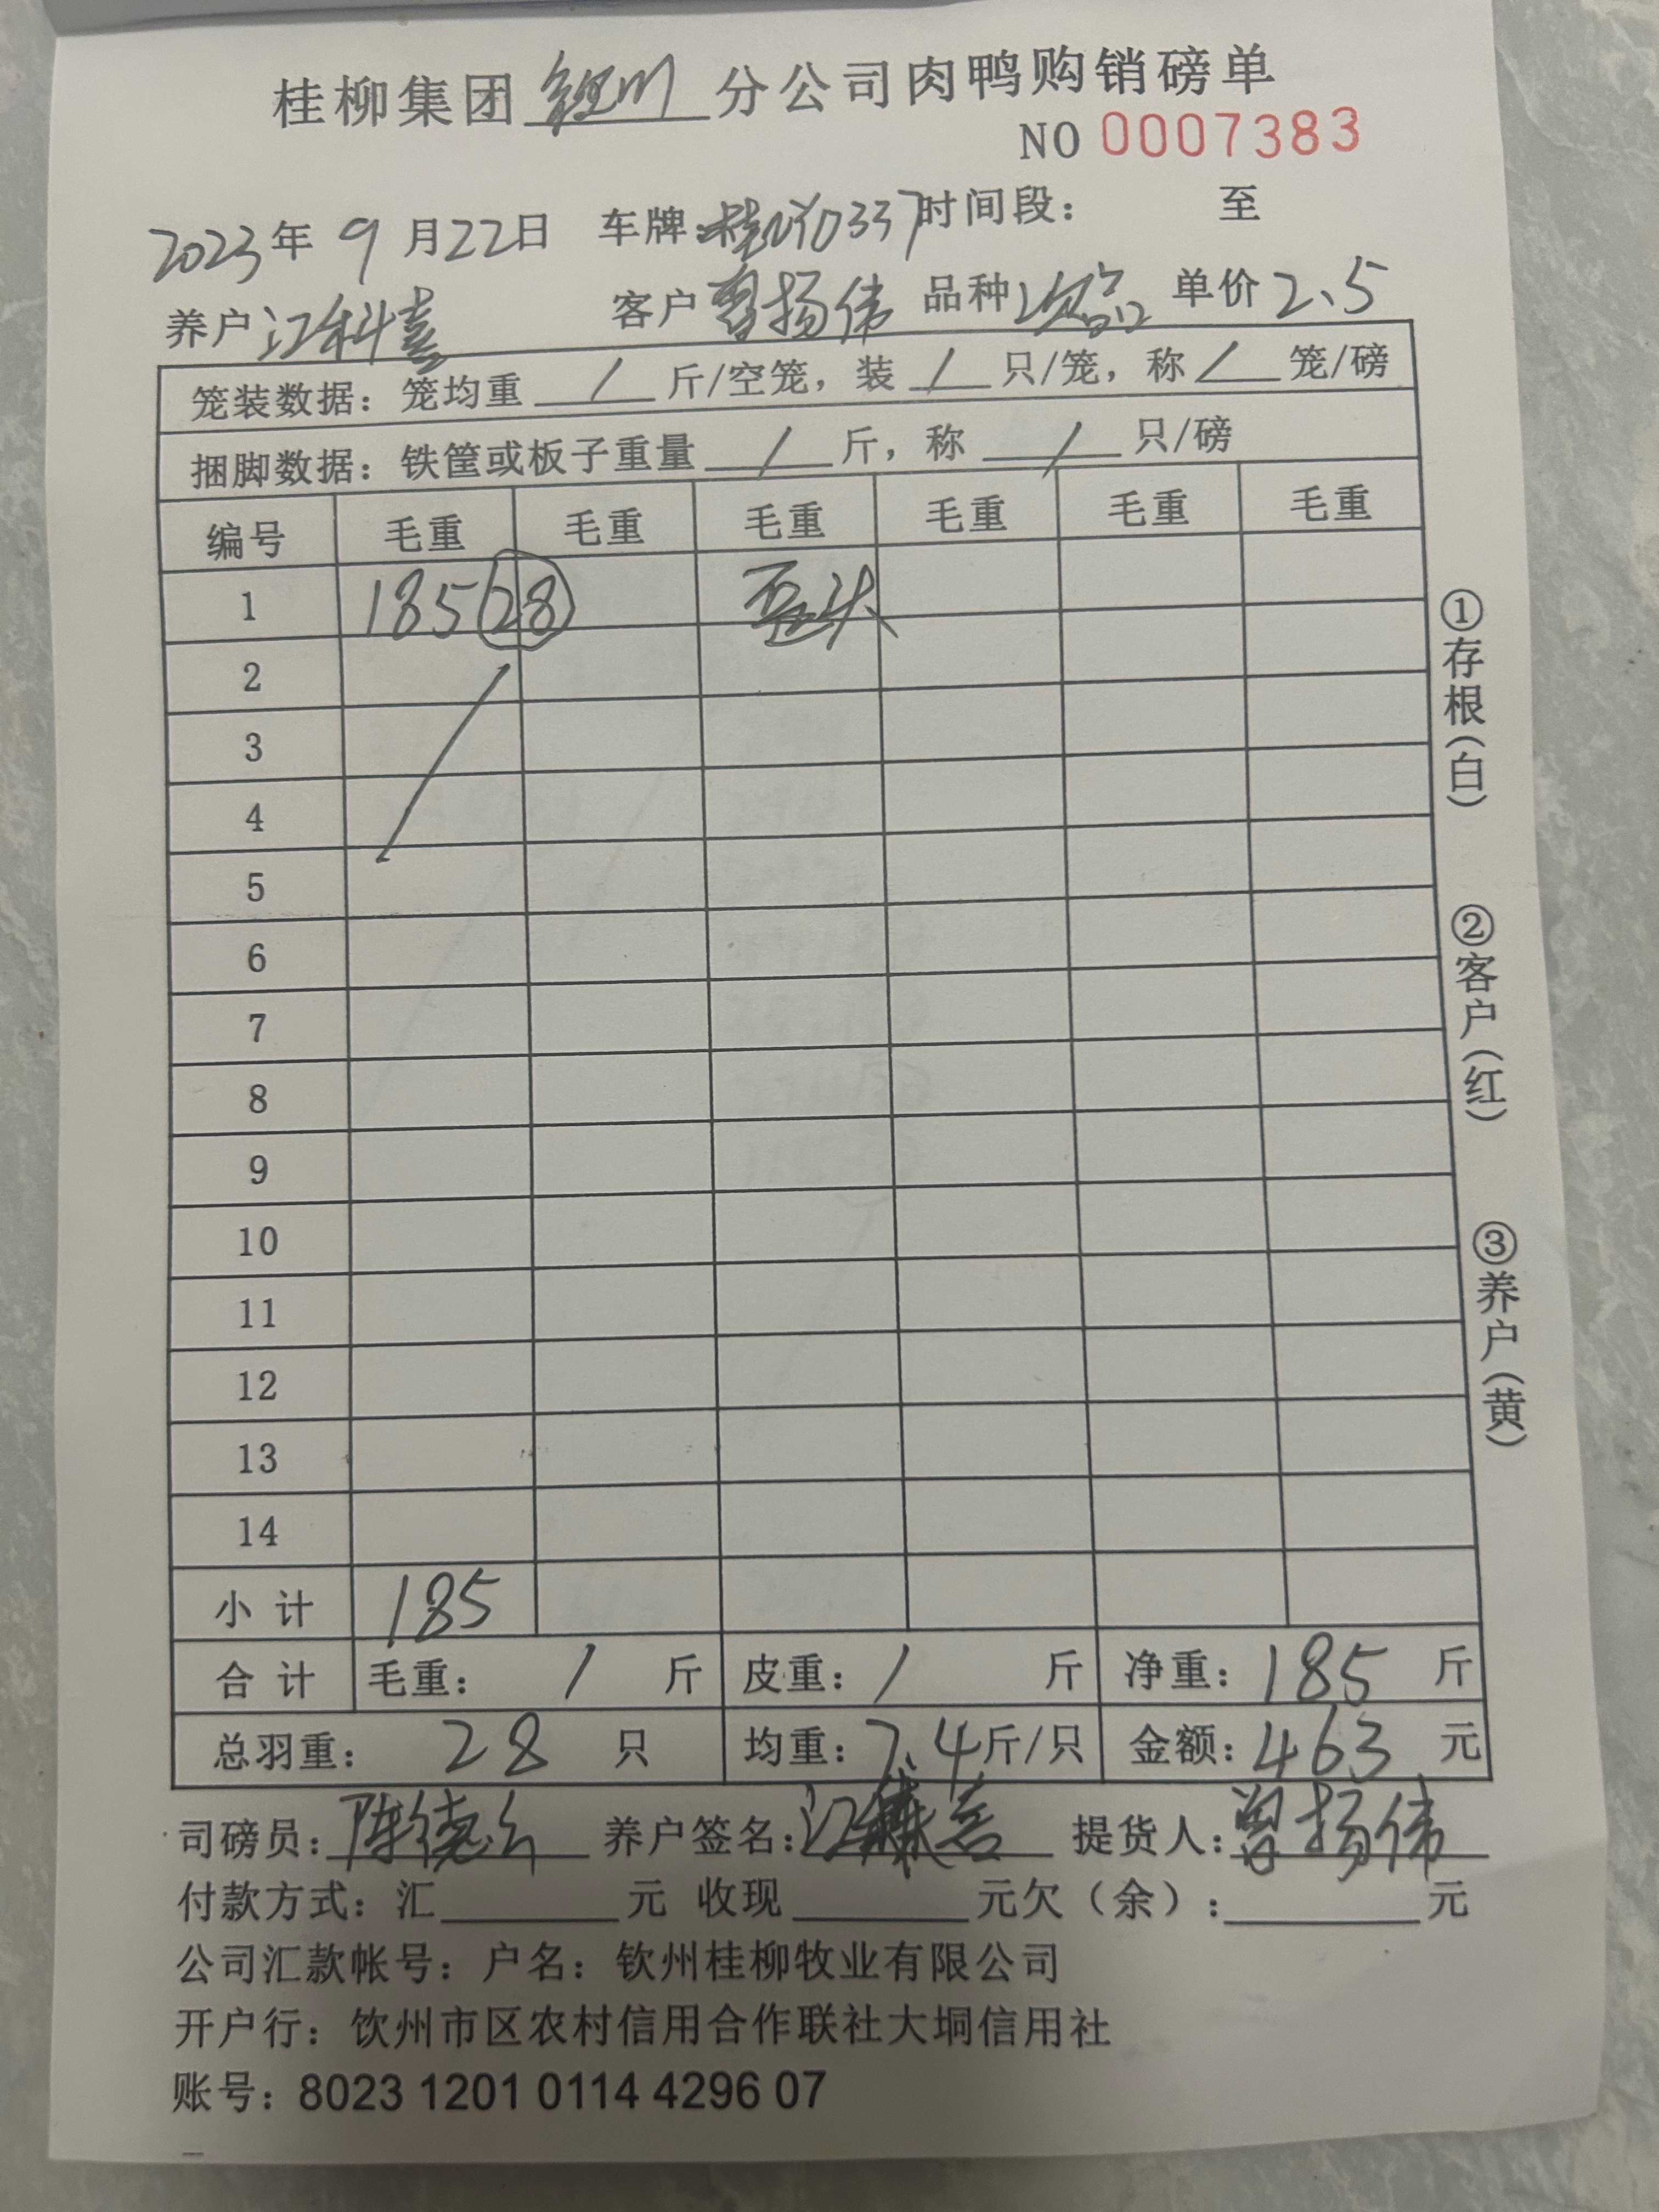 桂柳集团 钦州 分公司肉鸭购销磅单
NO 0007383
2023年 9 月22日 车牌: 时间段: 至
养户 江科喜 客户 曾扬伟 品种 次品 单价 2.5
笼装数据: 笼均重 / 斤/空笼, 装 / 只/笼, 称 / 笼/磅
捆脚数据: 铁筐或板子重量 / 斤, 称 / 只/磅
编号 毛重 毛重 毛重 毛重 毛重 毛重
1 185 28
2
3
4
5
6
7
8
9
10
11
12
13
14
小 计 185
合 计 毛重: / 斤 皮重: / 斤 净重: 185 斤
总羽重: 28 只 均重: 7.4 斤/只 金额: 463 元
司磅员: 养户签名: 提货人: 曾扬伟
付款方式: 汇 元 收现 元欠(余): 元
公司汇款帐号: 户名: 钦州桂柳牧业有限公司
开户行: 钦州市区农村信用合作联社大垌信用社
账号: 8023 1201 0114 4296 07
①存根(白)
②客户(红)
③养户(黄)